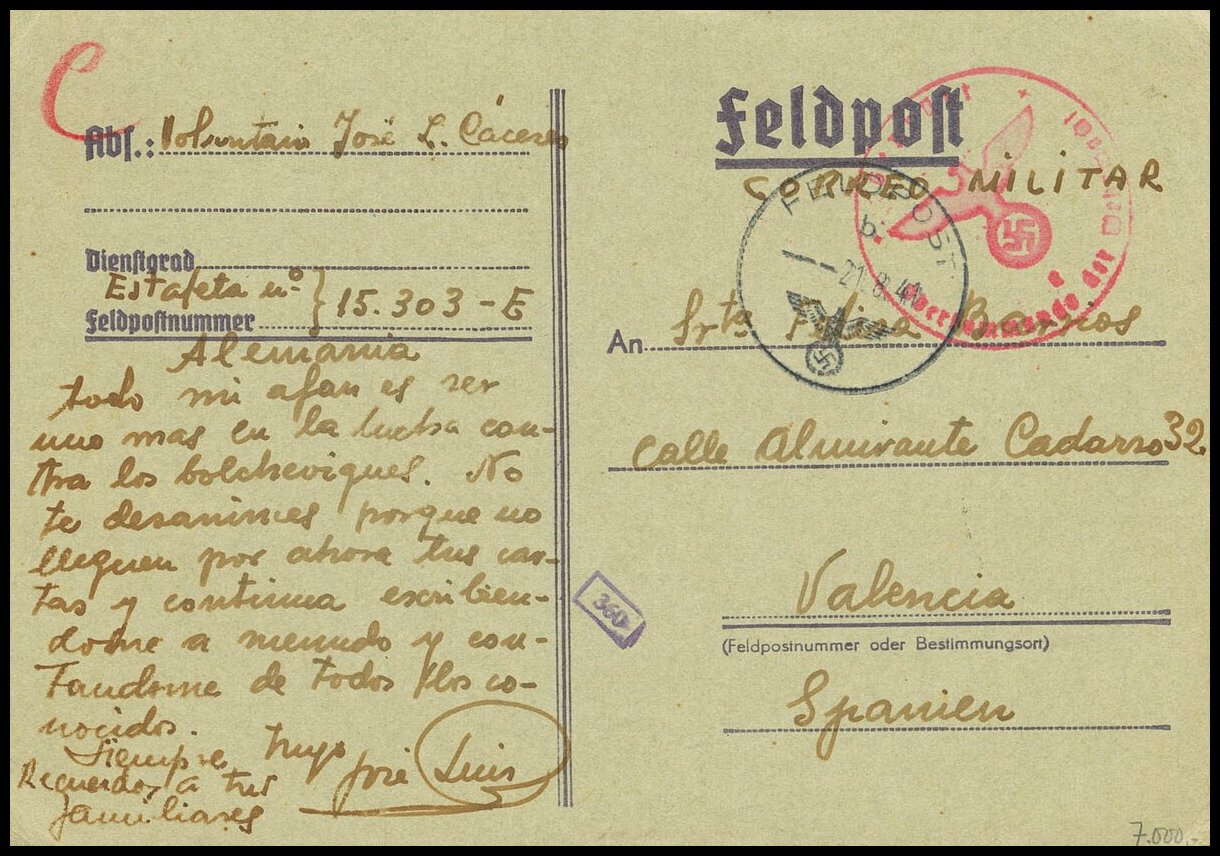 C
Abs.: Voluntario José L. Cáceres
Dienstgrad
Estafeta nº } 15.303-E
Feldpostnummer
Alemania
todo mi afan es ser
uno mas en la lucha con-
tra los bolcheviques. No
te desanimes porque no
lleguen por ahora tus car-
tas y continua escribien-
dome a menudo y con-
tandome de todos los co-
nocidos.
Siempre tuyo
José Luis
Recuerdos a tus
familiares
Feldpost
CORREO MILITAR
FELDPOST
b
21.8.41
Oberkommando der
An Srta Barrios
calle Almirante Cadarso 32.
Valencia
(Feldpostnummer oder Bestimmungsort)
Spanien
360
7.000,-